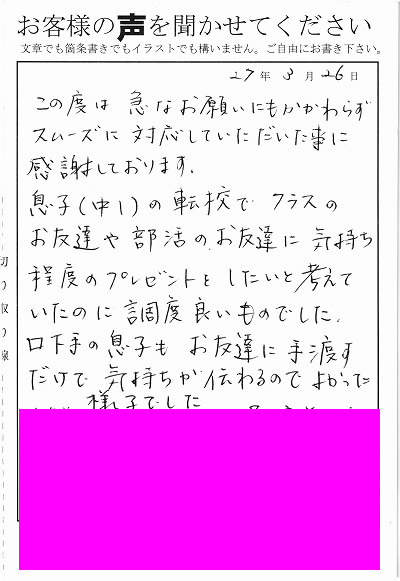 お客様の声を聞かせてください
文章でも箇条書きでもイラストでも構いません。ご自由にお書き下さい。
27年3月26日
この度は 急なお願いにもかかわらず
スムーズに 対応していただいた事に
感謝しております.
息子(中1)の転校で クラスの
お友達や 部活のお友達に 気持ち
程度のプレゼントを したいと考えて
いたのに 調度良いものでした.
口下手の息子も お友達に手渡す
だけで 気持ちが伝わるので よかった
様子でした
切り取り線